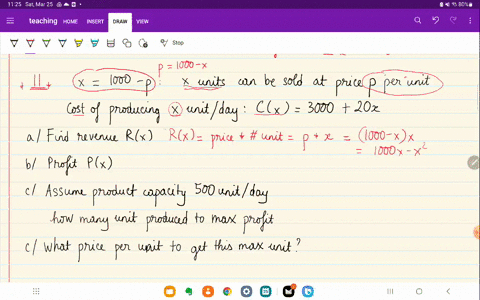 11:25 Sat, Mar 25
80%
teaching HOME INSERT DRAW VIEW
Stop
p = 1000-x
11 x = 1000-p : x units can be sold at price p per unit
Cost of producing x unit/day : C(x) = 3000 + 20x
a/ Find revenue R(x) R(x) = price * # unit = p * x = (1000-x)x
= 1000x - x²
b/ Profit P(x)
c/ Assume product capacity 500 unit/day
how many unit produced to max profit
c/ What price per unit to get this max unit?